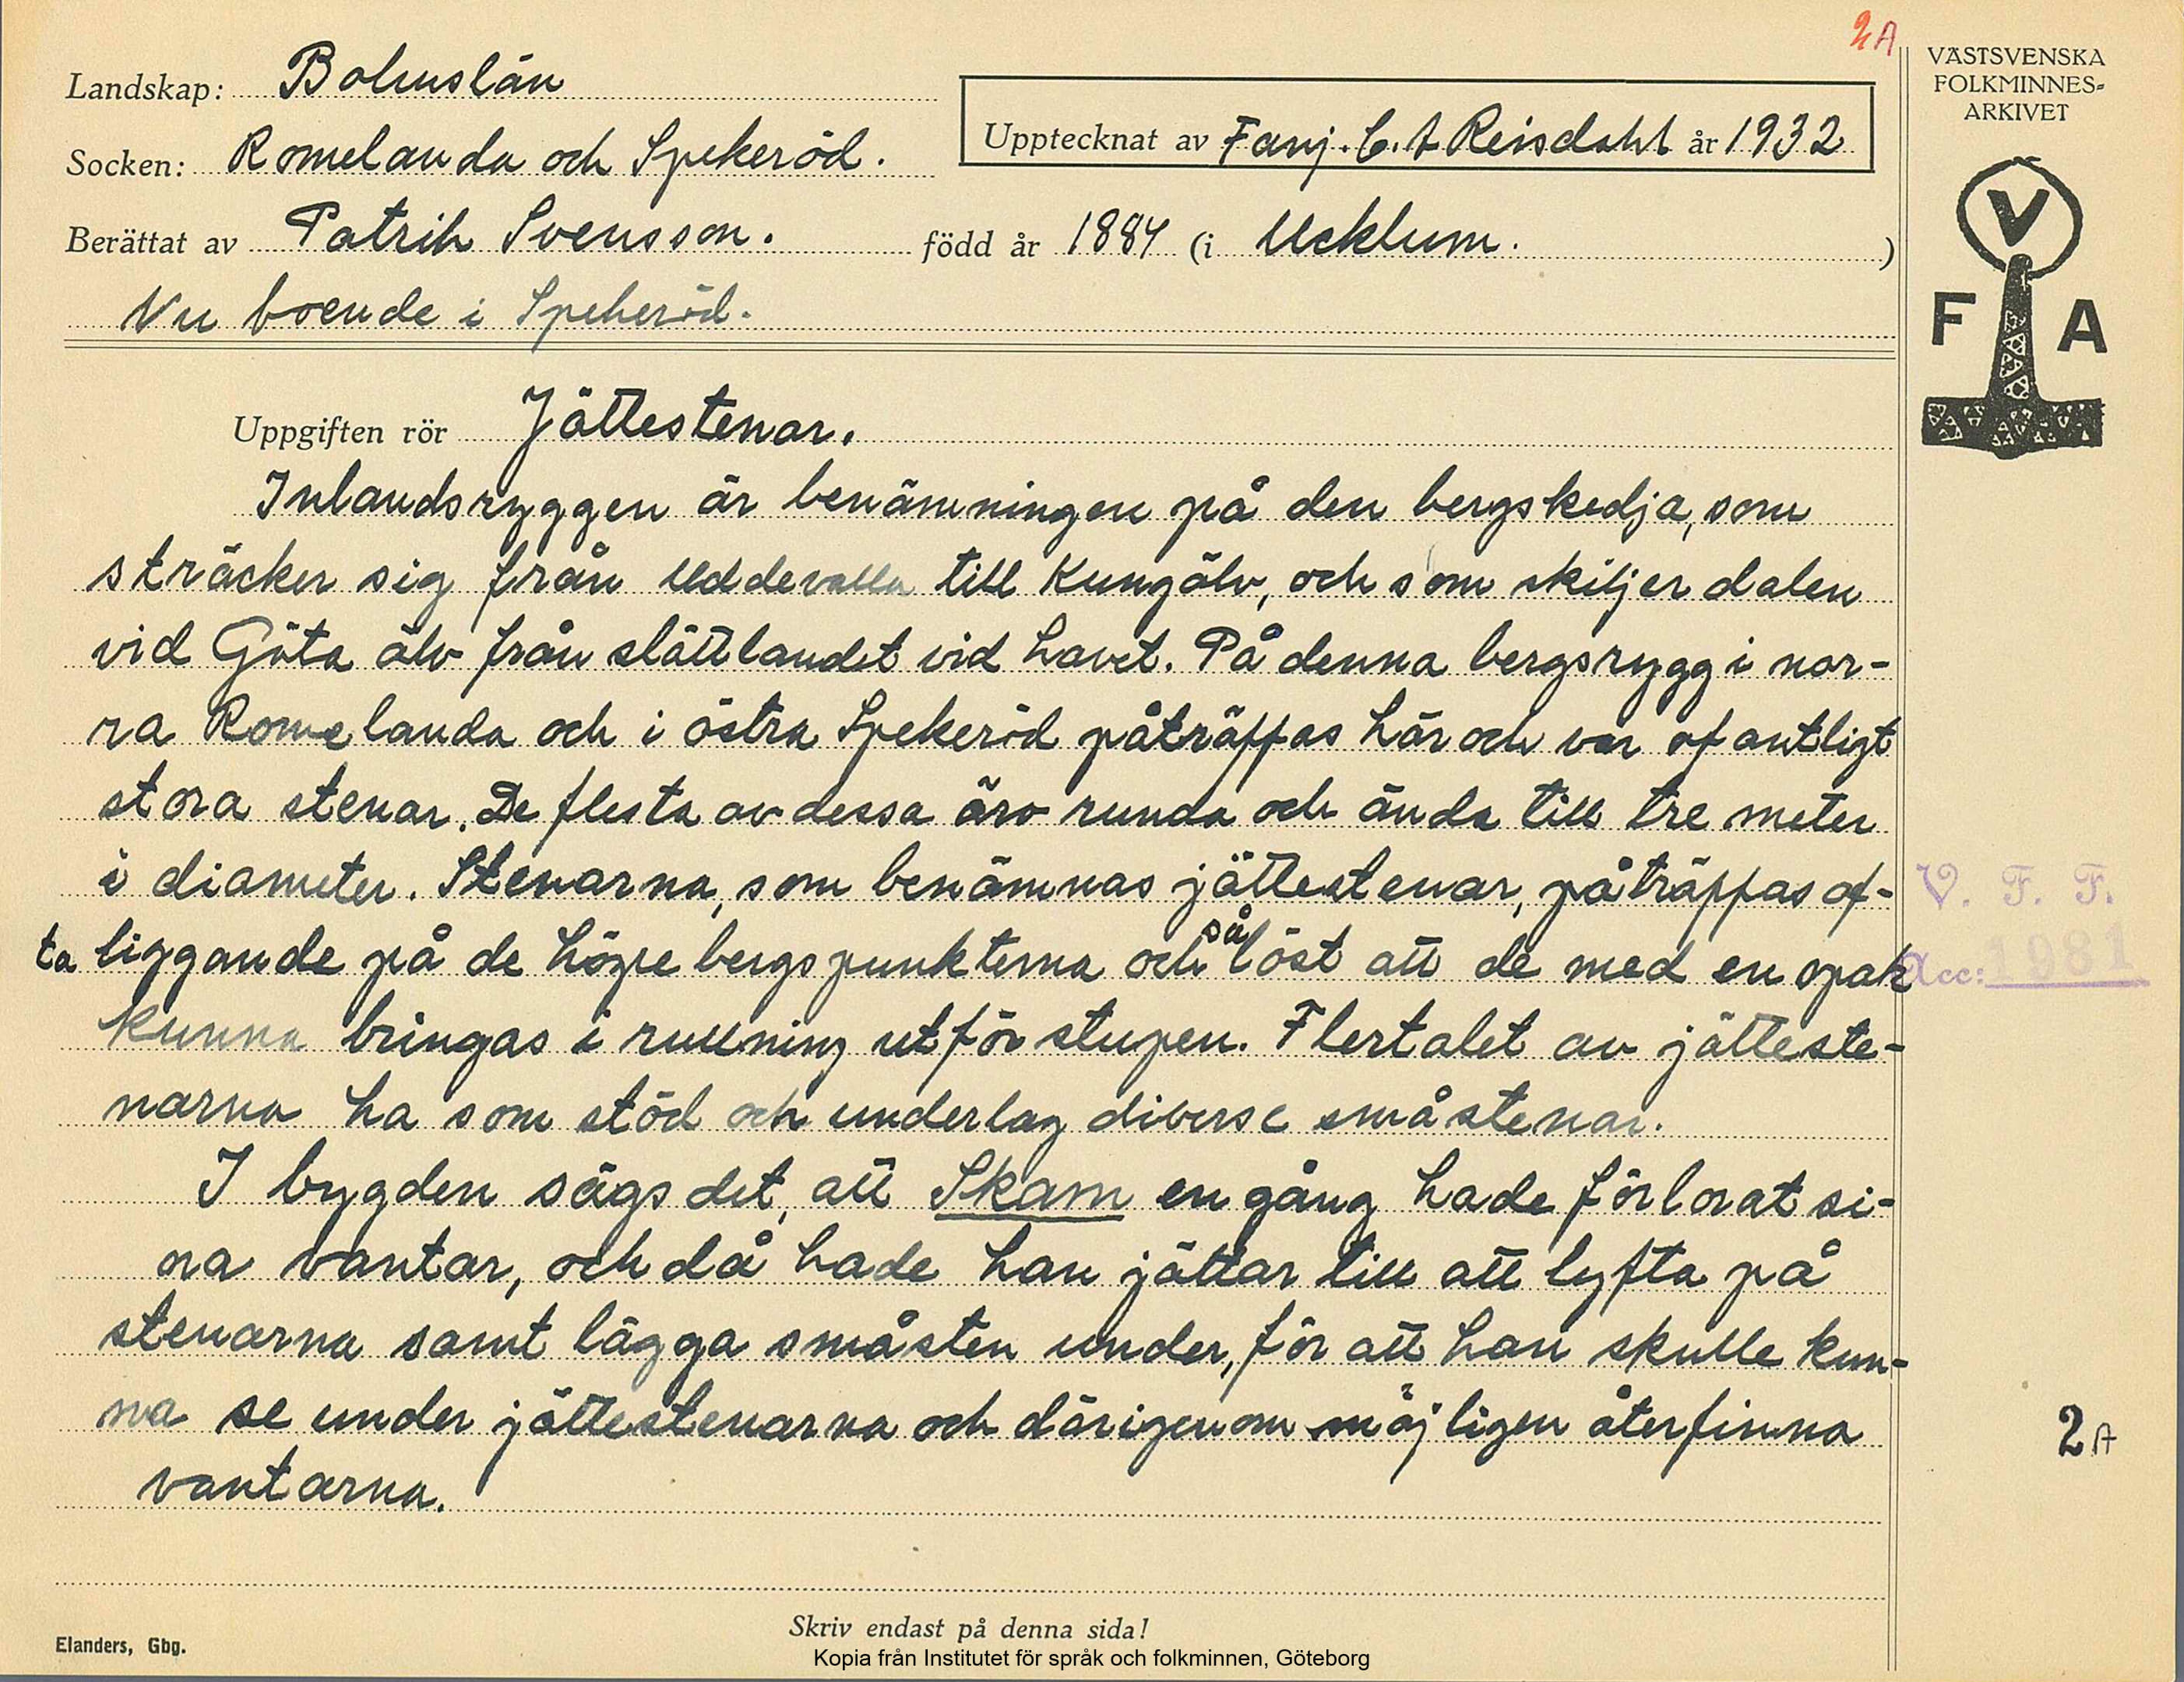 2A
VÄSTSVENSKA
FOLKMINNES-
ARKIVET
Landskap: Bohuslän
Upptecknat av Fanj. C. A Reisdahl år 1932
Socken: Romelanda och Spekeröd.
Berättat av Patrik Svensson. född år 1884 (i Ucklum. )
Nu boende i Spekeröd.
V
F A
Uppgiften rör Jättestenar.
Inlandsryggen är benämningen på den bergskedja, som
sträcker sig från Uddevalla till Kungälv, och som skiljer dalen
vid Göta älv från slättlandet vid havet. På denna bergsrygg i nor-
ra Romelanda och i östra Spekeröd påträffas här och var ofantligt
stora stenar. De flesta av dessa äro runda och ända till tre meter
i diameter. Stenarna, som benämnas jättestenar, påträffas of-
ta liggande på de högre bergspunkterna och så löst att de med en opak
kunna bringas i rullning utför stupen. Flertalet av jätteste-
narna ha som stöd och underlag diverse småstenar.
I bygden sägs det, att Skam en gång hade förlorat si-
na vantar, och då hade han jättar till att lyfta på
stenarna samt lägga småsten under, för att han skulle kun-
na se under jättestenarna och därigenom möjligen återfinna
vantarna.
V. F. F.
Acc: 1981
2A
Skriv endast på denna sida!
Elanders, Gbg.
Kopia från Institutet för språk och folkminnen, Göteborg